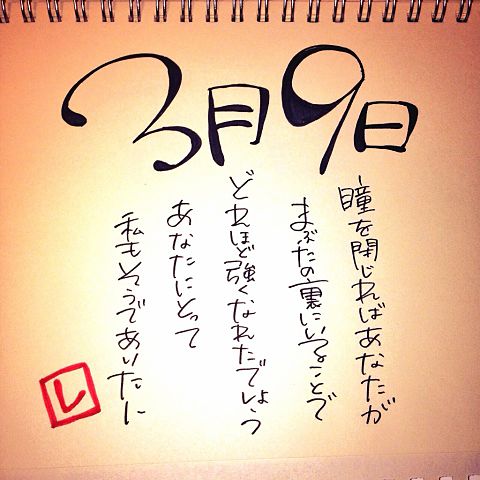 3月9日
瞳を閉じればあなたが
まぶたの裏にいることで
どれほど強くなれたでしょう
あなたにとって
私もそうであいたい
レ